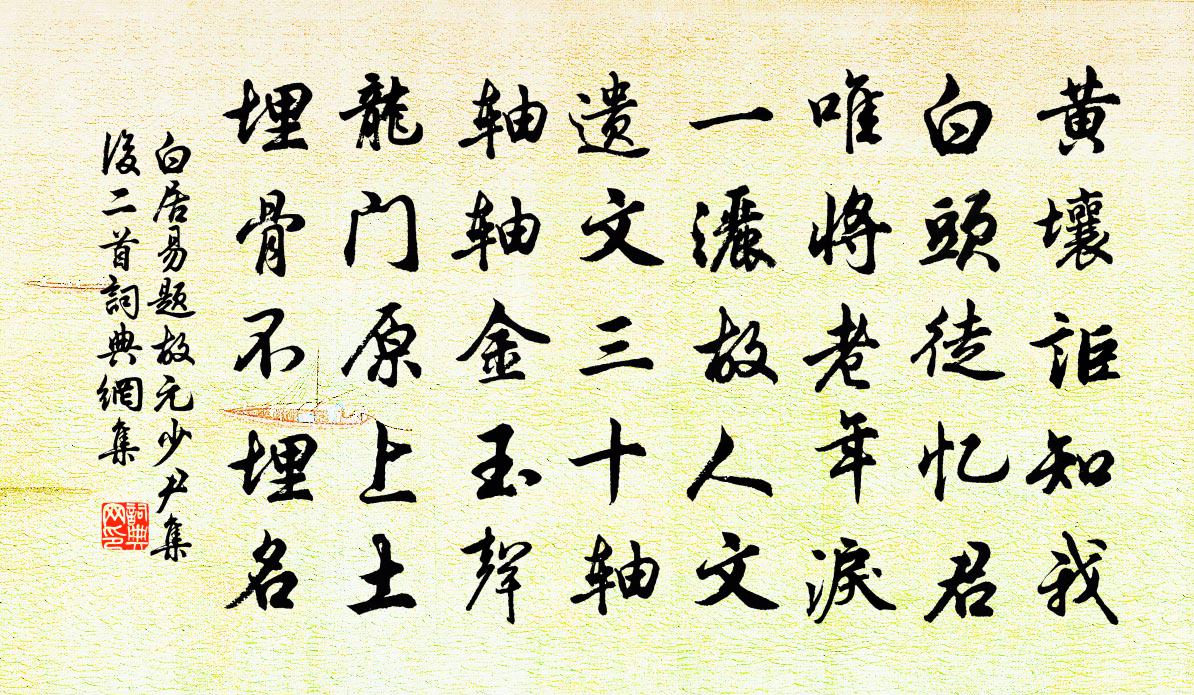 黄壤詎知我
白頭徒忆君
唯將老年淚
一灑故人文
遗文三十軸
軸軸金玉聲
龍门原上土
埋骨不埋名
白居易題故元少尹集
後二首詞典網集
詞典网印